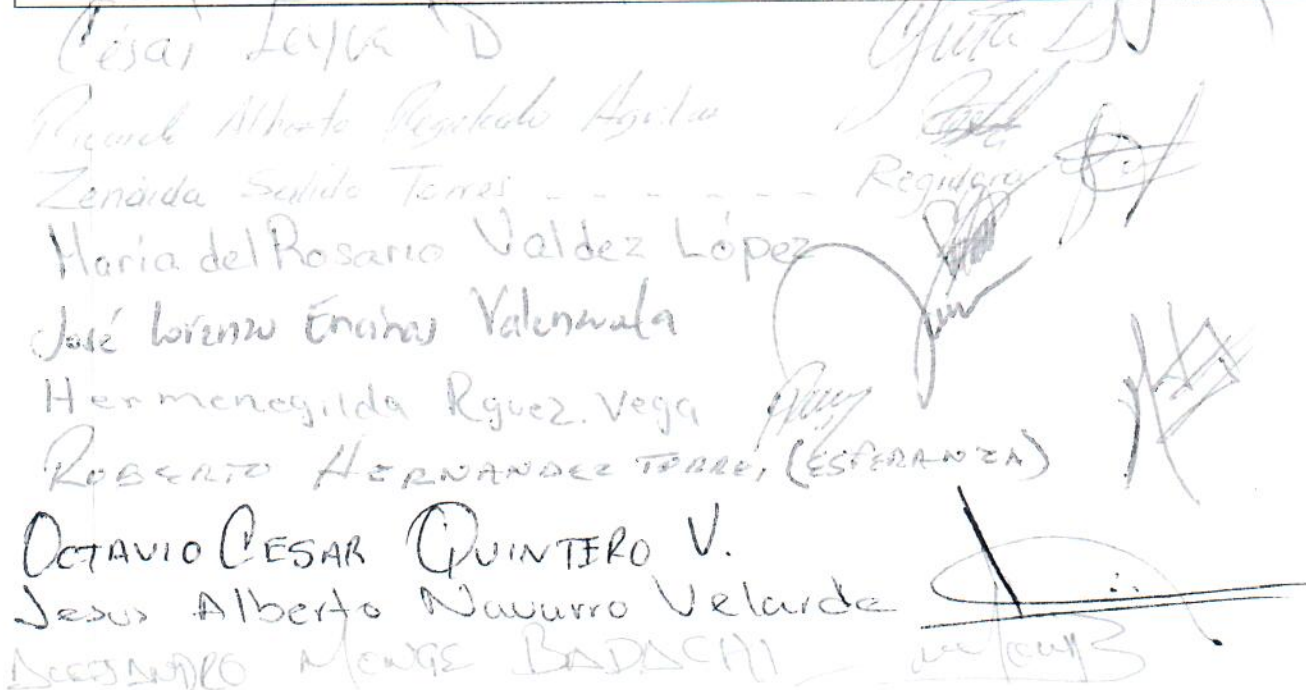 César Leyva D
Ricardo Alberto Regalado Aguilar
Zenaida Salido Torres - - - - - - Regidora
María del Rosario Valdez López
José Lorenzo Encinas Valenzuela
Hermenegilda Rguez. Vega
ROBERTO HERNANDEZ TORRES, (ESPERANZA)
OCTAVIO CESAR QUINTERO V.
Jesus Alberto Navarro Velarde
ALEJANDRO MENGE BADACHI